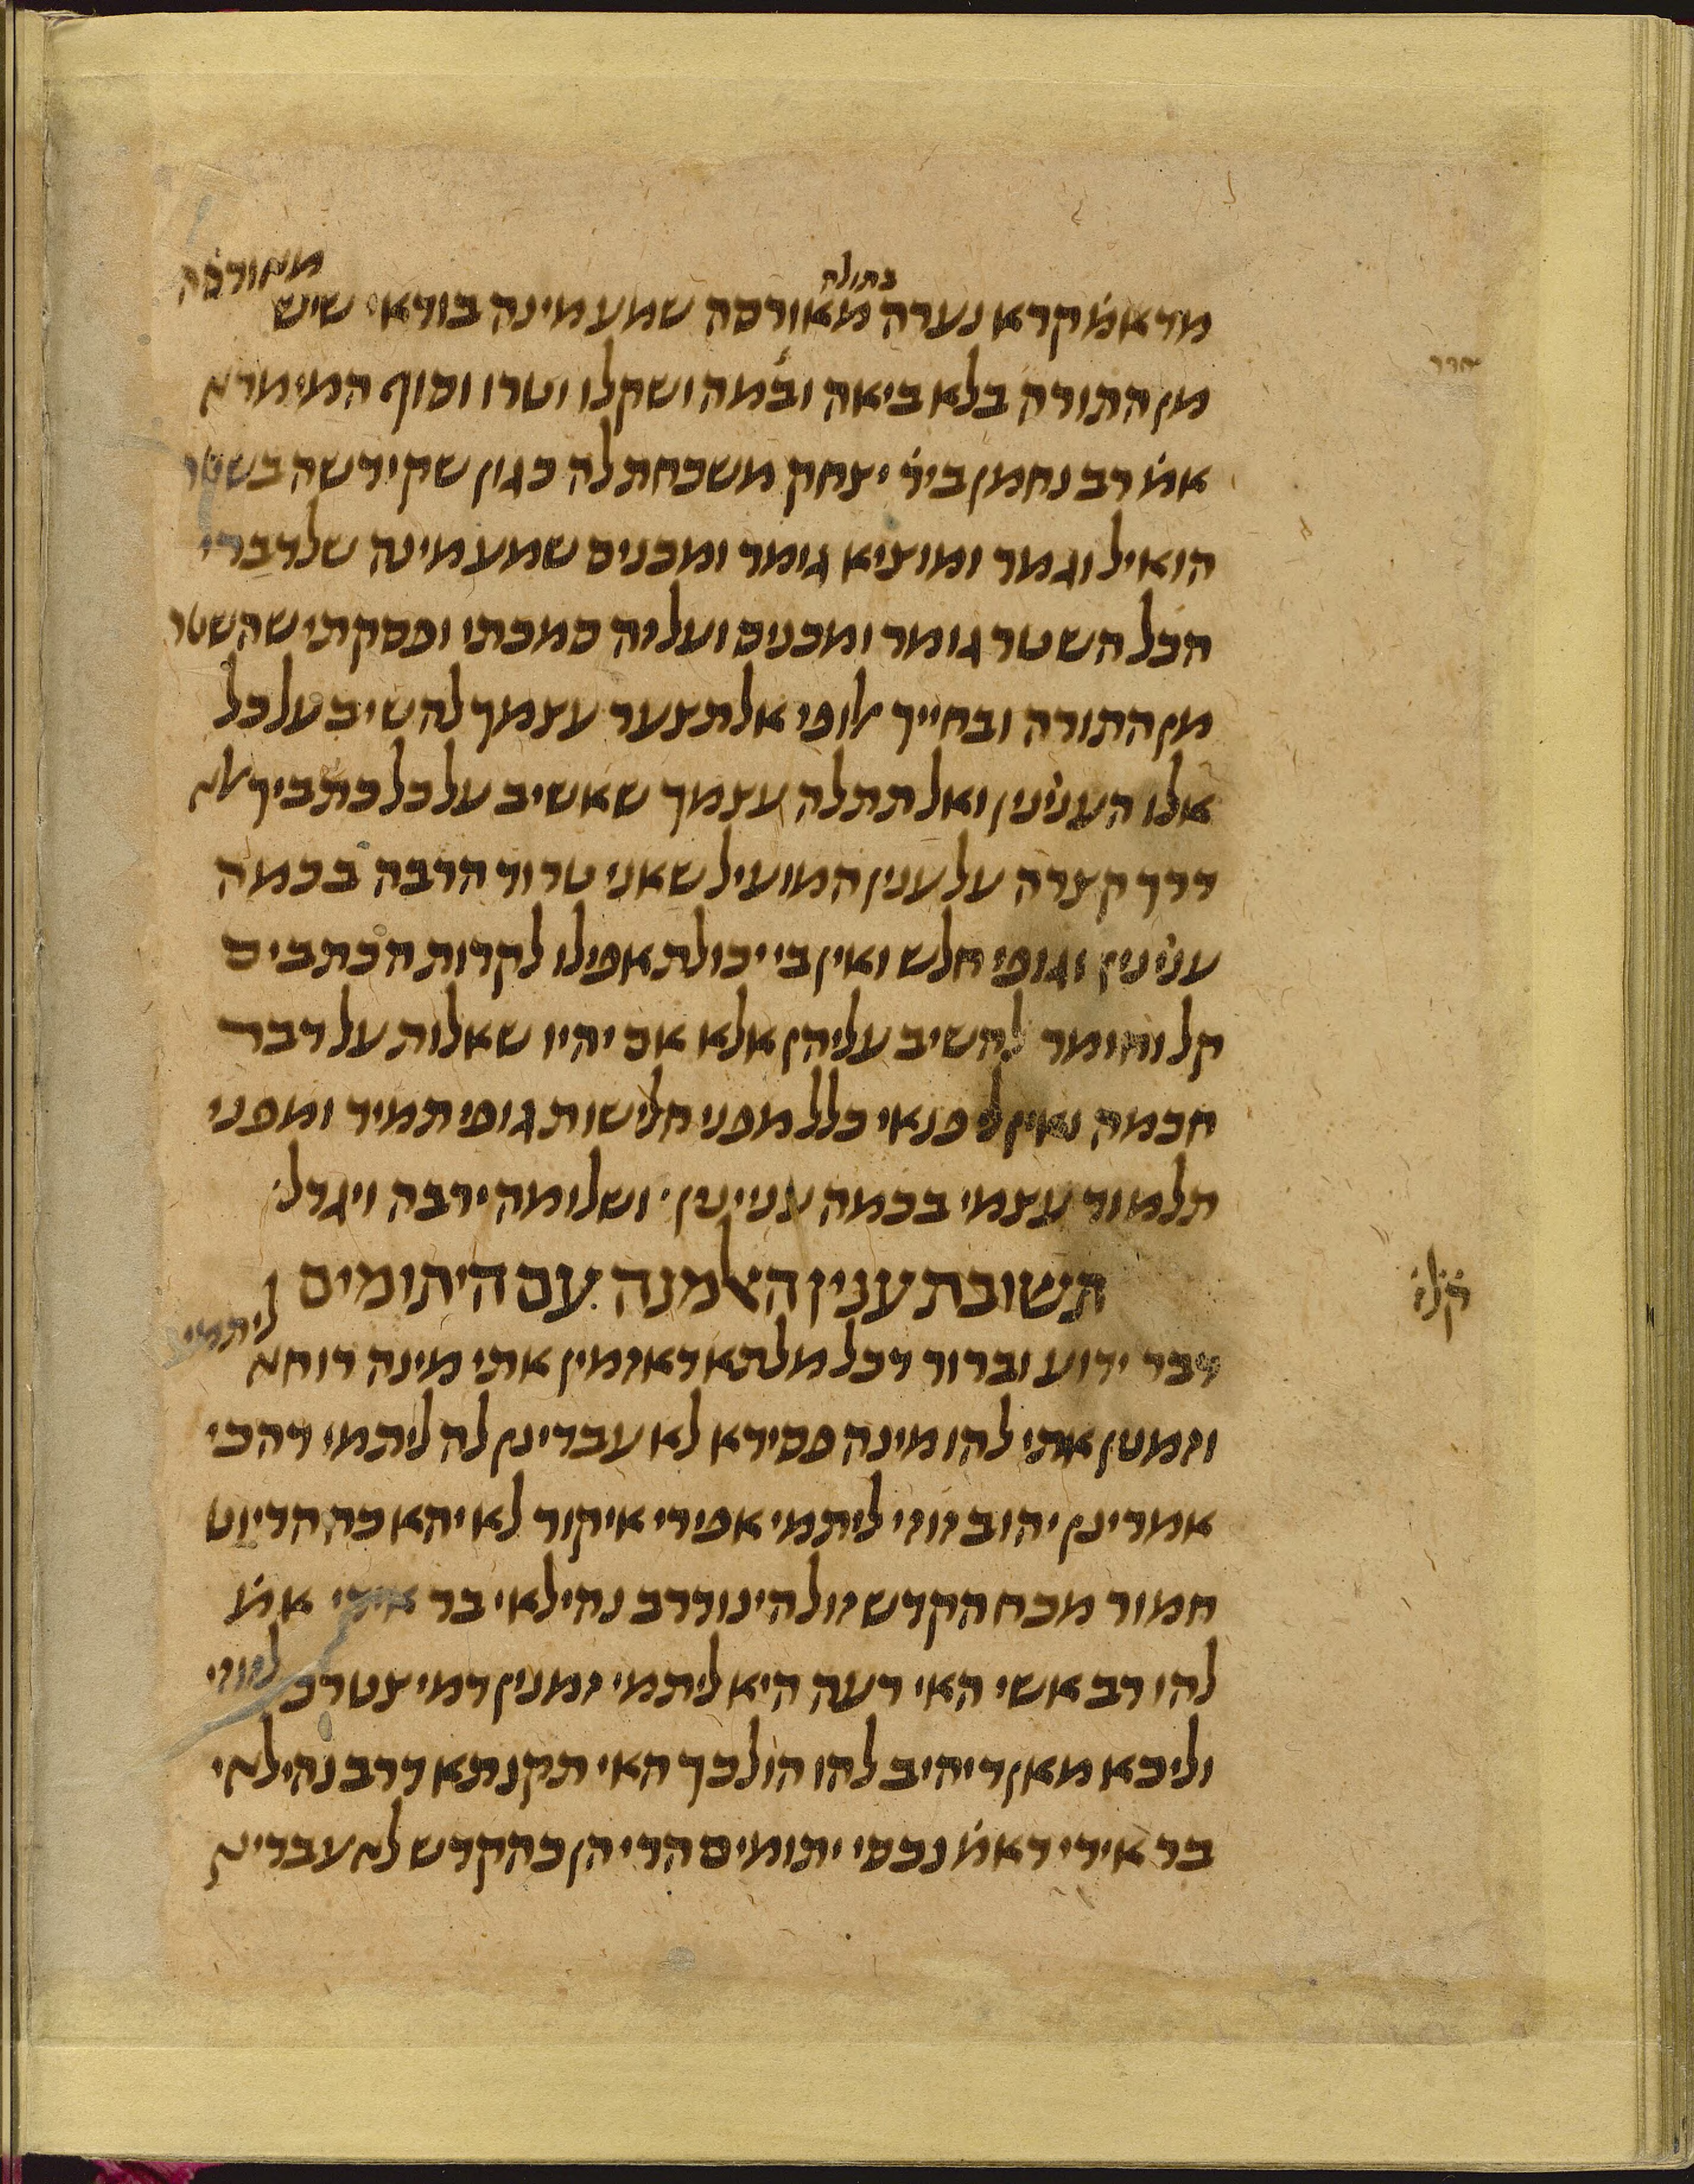 בתולה
מדאמ׳ קרא נערה מאורסה שמע מינה בודאי שיש מאורסה
מן התורה בלא ביאה ובמה ושקלו וטרו וסוף המימרא
אמ׳ רב נחמן בר׳ יצחק משכחת לה כגון שקידשה בשטר
הואיל וגמר ומוציא גומר ומכניס שמע מינה שלדברי
הכל השטר גומר ומכניס ועל זה סמכתי ופסקתי שהשטר
מן התורה ובחייך אלופי אל תצער עצמך להשיב על כל
אלו הענינין ואל תתלה עצמך שאשיב על כל כתביך אלא
דרך קצרה על ענין המועיל שאני טרוד הרבה בכמה
ענינין וגופי חלש ואין בי יכולת אפילו לקרות הכתבים
קל וחומר להשיב עליהן אלא אם יהיו שאלות על דבר
חכמה ואין לי פנאי כלל מפני חלישות גופי תמיד ומפני
תלמוד עצמי בכמה עניינין׳ ושלומה ירבה ויגדל׳
תשובת ענין האלמנה עם היתומים
קלו׳
דבר ידוע וברור דכל מלתא דאזמין אתי מינה רוחא ליתמי
וזמנין אתי להו מינה פסידא לא עבדינן לה ליתמי דהכי
אמרינן יהוב זוזי ליתמי אפידי איקור לא יהא כח הדיוט
חמור מכח הקדש זולהינו דרב נהילאי בר אידי אמ׳
להו רב אשי האי רעה היא ליתמי זמנין דמיצטרכ׳ לזוזי
וליכא מאן דיהיב להו הולכך האי תקנתא דרב נהילאי
בר אידי דאמ׳ נכסי יתומים הרי הן כהקדש לא עבדינ׳